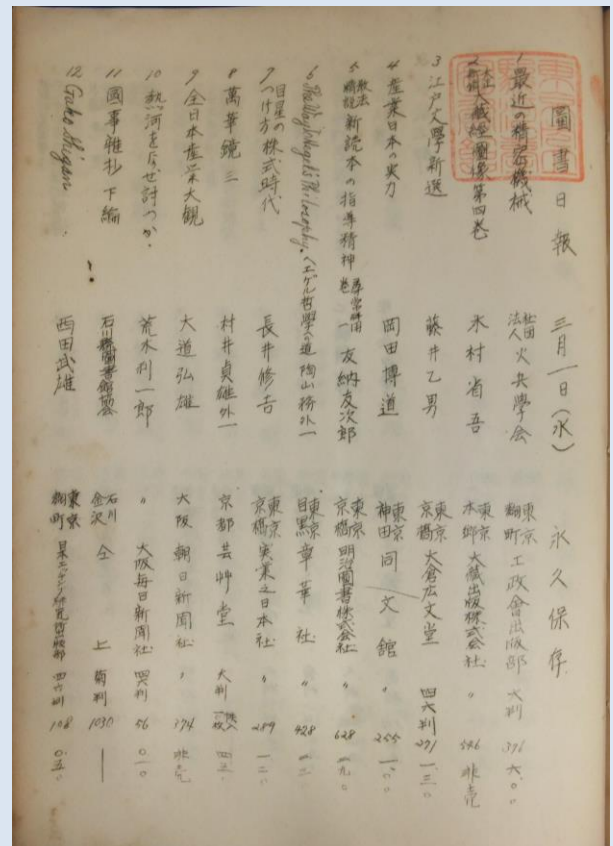 圖書日報 三月一日(水) 永久保存
1 最近の精密機械 社団法人 火兵學会 東京麹町 工政會出版部 大判 376 六.〇〇
2 大藏經圖像第四巻 木村省吾 東京本郷 大藏出版株式会社 〃 546 非売
3 江戸文學新選 藤井乙男 東京京橋 大倉広文堂 四六判 271 一.三〇
4 産業日本の実力 岡田博道 東京神田 同文館 〃 255 一.〇〇
5 新読本の指導精神 尋常科用 巻一 友納友次郎 東京京橋 明治圖書株式会社 〃 628
6 The Way To Hegel's Philosophy. ヘエゲル哲學への道 陶山務外一 東京目黒 章華社 〃 428
7 目星のつけ方 株式時代 長井修吉 東京京橋 実業之日本社 〃 289 一.二〇
8 萬華鏡 三 村井貞雄外一 京都 芸艸堂 大判
9 全日本産業大観 大道弘雄 大阪 朝日新聞社 〃 374 非売
10 熱河をなぜ討つか. 荒木利一郎 〃 大阪毎日新聞社 四六判 56 〇.一〇
11 國事雅抄 下編 石川縣圖書館協会 石川金沢 仝上 菊判 1030 —
12 Gako Shigan 西田武雄 東京麹町 日本エッチング研究所出版部 四六判 108 〇.五〇